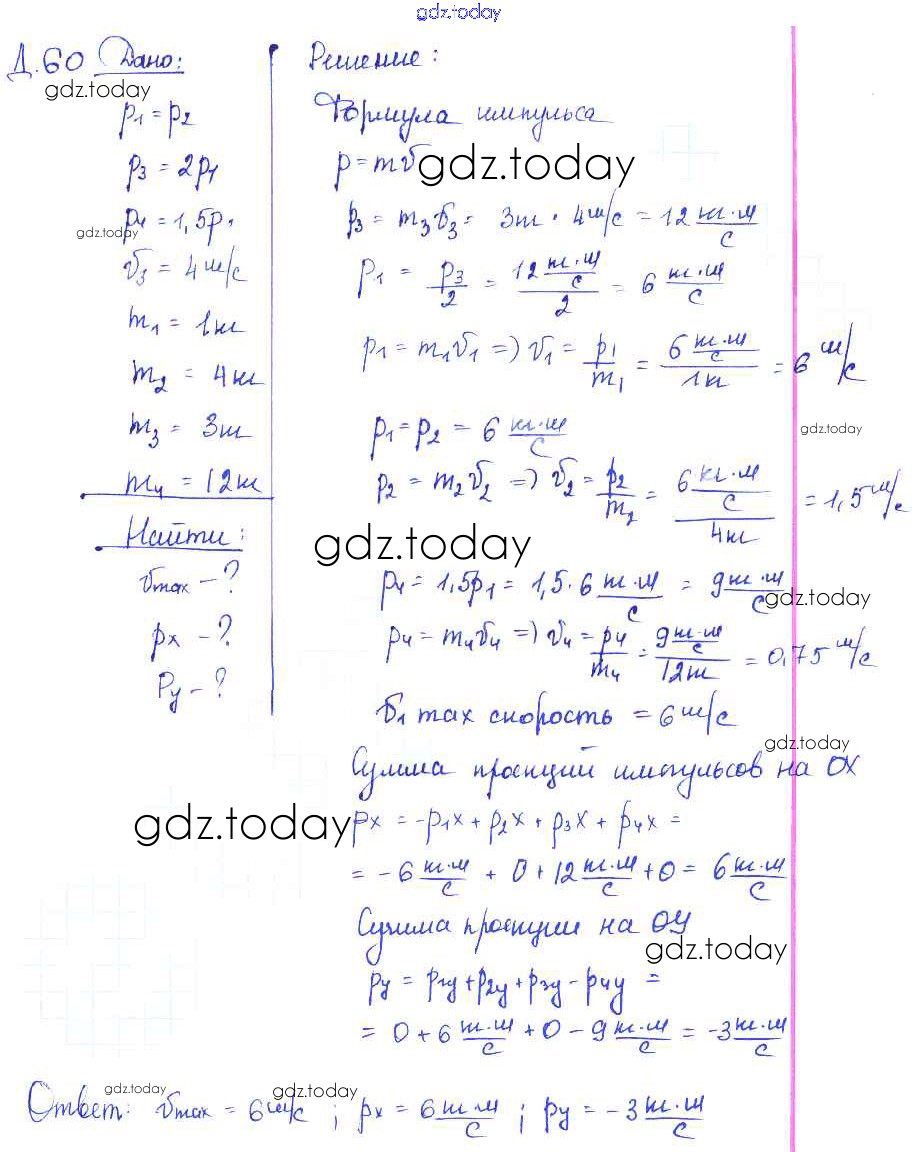 gdz.today
Д.60 Дано:
gdz.today
p₁ = p₂
p₃ = 2p₁
p₄ = 1,5p₁
gdz.today
v₃ = 4 м/с
m₁ = 1 кг
m₂ = 4 кг
m₃ = 3 кг
m₄ = 12 кг
Найти:
vmax – ?
px – ?
Py – ?
Решение:
Формула импульса
p = mv
gdz.today
p₃ = m₃v₃ = 3 кг · 4 м/с = 12 кг·м/с
p₁ = p₃/2 = (12 кг·м/с)/2 = 6 кг·м/с
p₁ = m₁v₁ => v₁ = p₁/m₁ = (6 кг·м/с)/1 кг = 6 м/с
p₁ = p₂ = 6 кг·м/с
gdz.today
p₂ = m₂v₂ => v₂ = p₂/m₂ = (6 кг·м/с)/4 кг = 1,5 м/с
gdz.today
p₄ = 1,5p₁ = 1,5 · 6 кг·м/с = 9 кг·м/с
gdz.today
p₄ = m₄v₄ => v₄ = p₄/m₄ = (9 кг·м/с)/12 кг = 0,75 м/с
v₁ max скорость = 6 м/с
gdz.today
Сумма проекций импульсов на OX
gdz.today
px = -p₁x + p₂x + p₃x + p₄x =
= -6 кг·м/с + 0 + 12 кг·м/с + 0 = 6 кг·м/с
Сумма проекции на OY
gdz.today
py = p₁y + p₂y + p₃y - p₄y =
= 0 + 6 кг·м/с + 0 - 9 кг·м/с = -3 кг·м/с
gdz.today
gdz.today
Ответ: vmax = 6 м/с ; px = 6 кг·м/с ; py = -3 кг·м/с